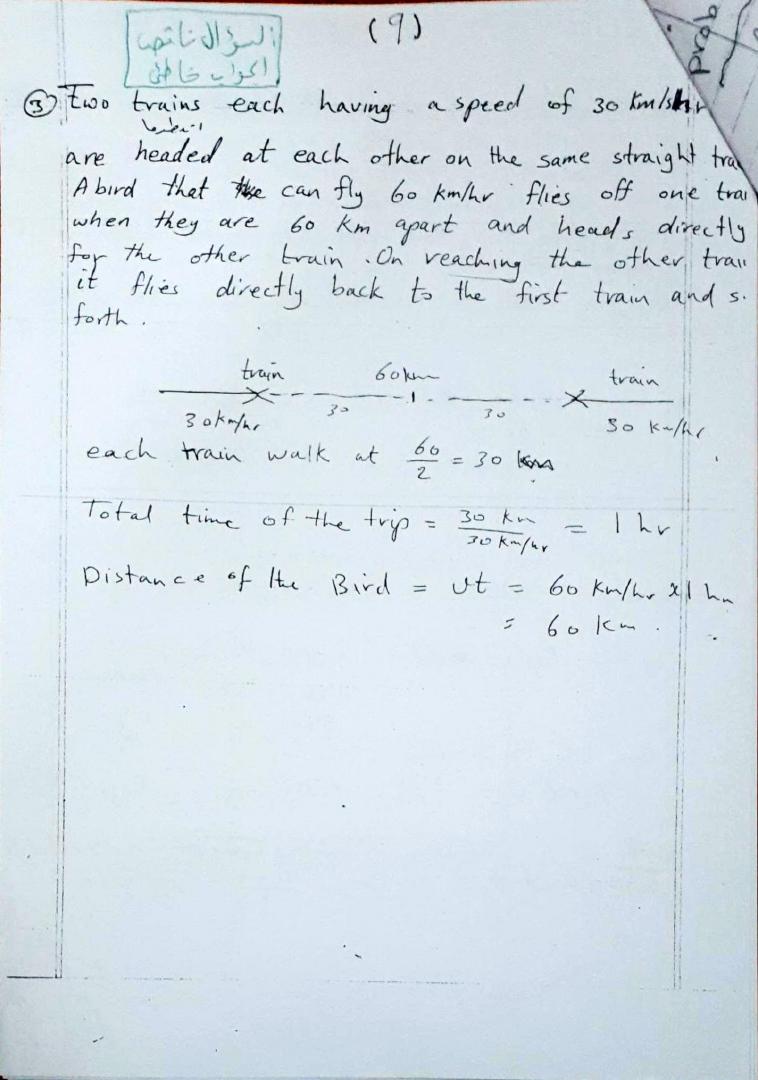 (9)
السؤال ناقص
الجواب خاطئ
prob
③ Two trains each having a speed of 30 km/hr
are headed at each other on the same straight tra
A bird that can fly 60 km/hr flies off one trai
when they are 60 km apart and heads directly
for the other train. On reaching the other trai
it flies directly back to the first train and s.
forth.
train 60km train
30km/hr 30 30 30 km/hr
each train walk at 60/2 = 30 km
Total time of the trip = 30 km / 30 km/hr = 1 hr
Distance of the Bird = vt = 60 km/hr x 1 hr
= 60 km.